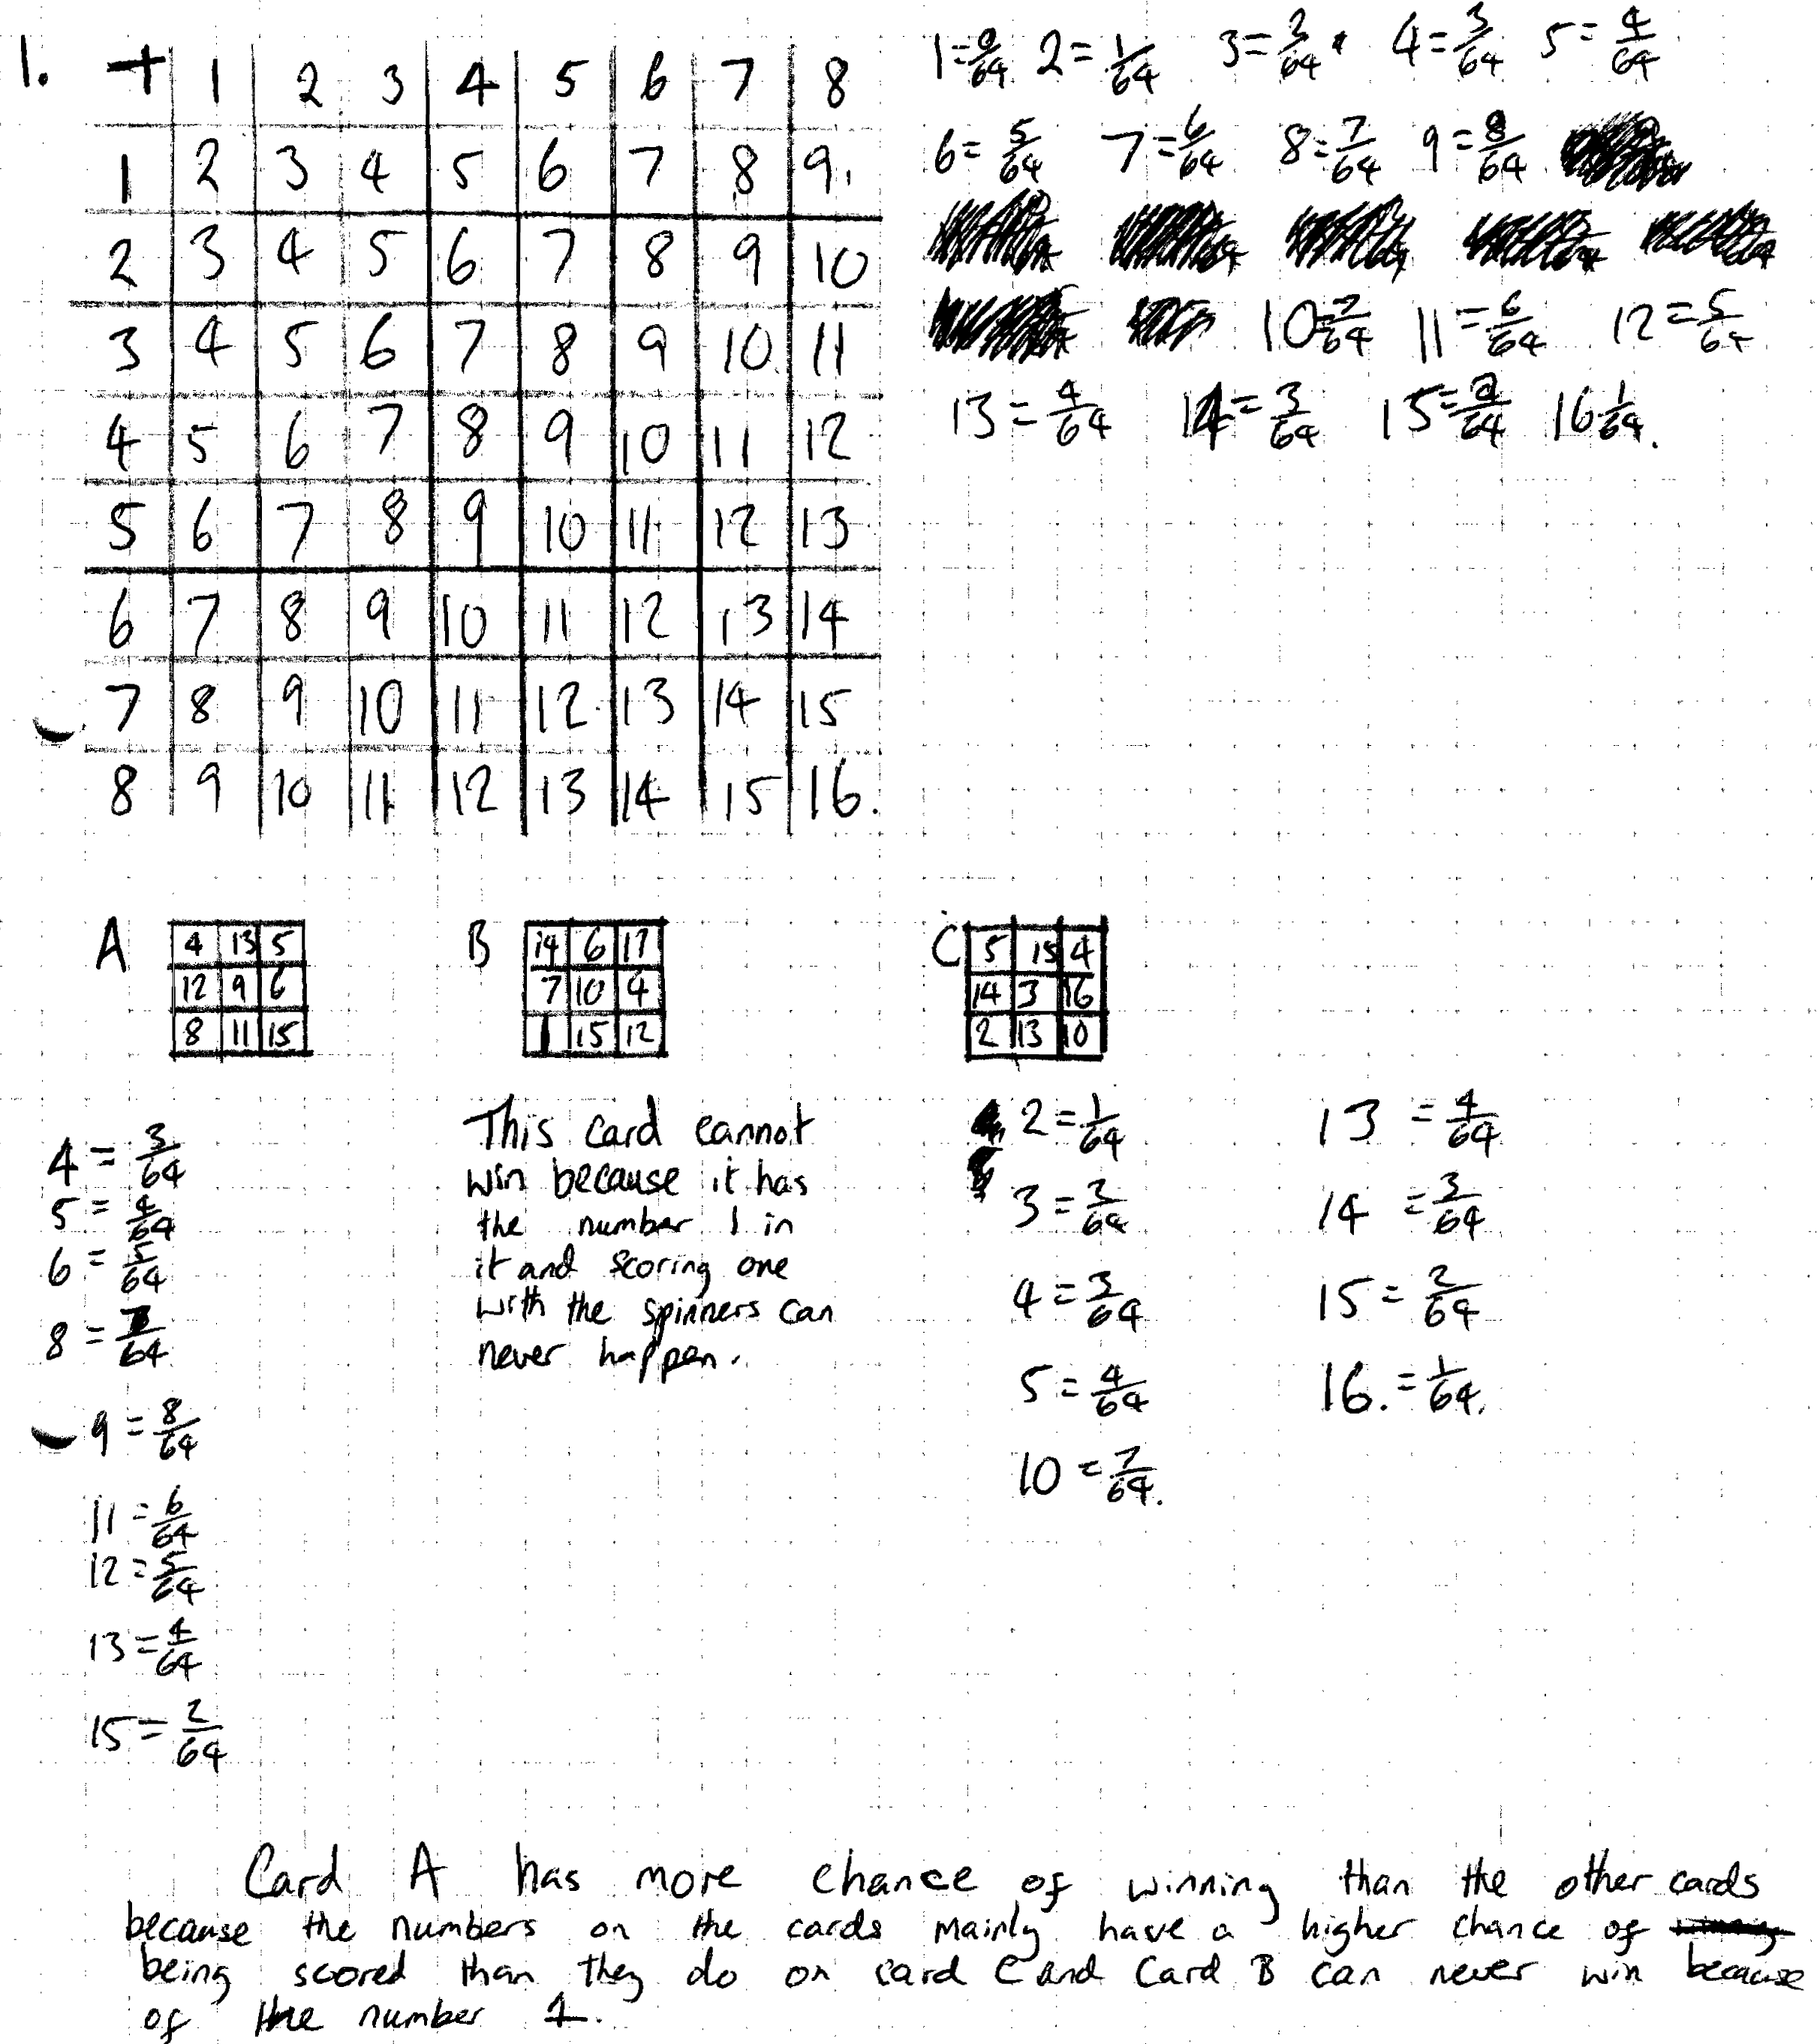 1. + 1 2 3 4 5 6 7 8
1 2 3 4 5 6 7 8 9.
2 3 4 5 6 7 8 9 10
3 4 5 6 7 8 9 10 11
4 5 6 7 8 9 10 11 12
5 6 7 8 9 10 11 12 13
6 7 8 9 10 11 12 13 14
7 8 9 10 11 12 13 14 15
8 9 10 11 12 13 14 15 16.
1=0/64 2=1/64 3=2/64 4=3/64 5=4/64
6=5/64 7=6/64 8=7/64 9=8/64
10=7/64 11=6/64 12=5/64
13=4/64 14=3/64 15=2/64 16 1/64.
A
4 13 5
12 9 6
8 11 15
B
14 6 17
7 10 4
1 15 12
C
5 15 4
14 3 16
2 13 10
4=3/64
5=4/64
6=5/64
8=7/64
9=8/64
11=6/64
12=5/64
13=4/64
15=2/64
This card cannot
win because it has
the number 1 in
it and scoring one
with the spinners can
never happen.
2=1/64
3=2/64
4=3/64
5=4/64
10=7/64.
13=4/64
14=3/64
15=2/64
16.=1/64.
Card A has more chance of winning than the other cards
because the numbers on the cards mainly have a higher chance of
being scored than they do on card C and Card B can never win because
of the number 1.